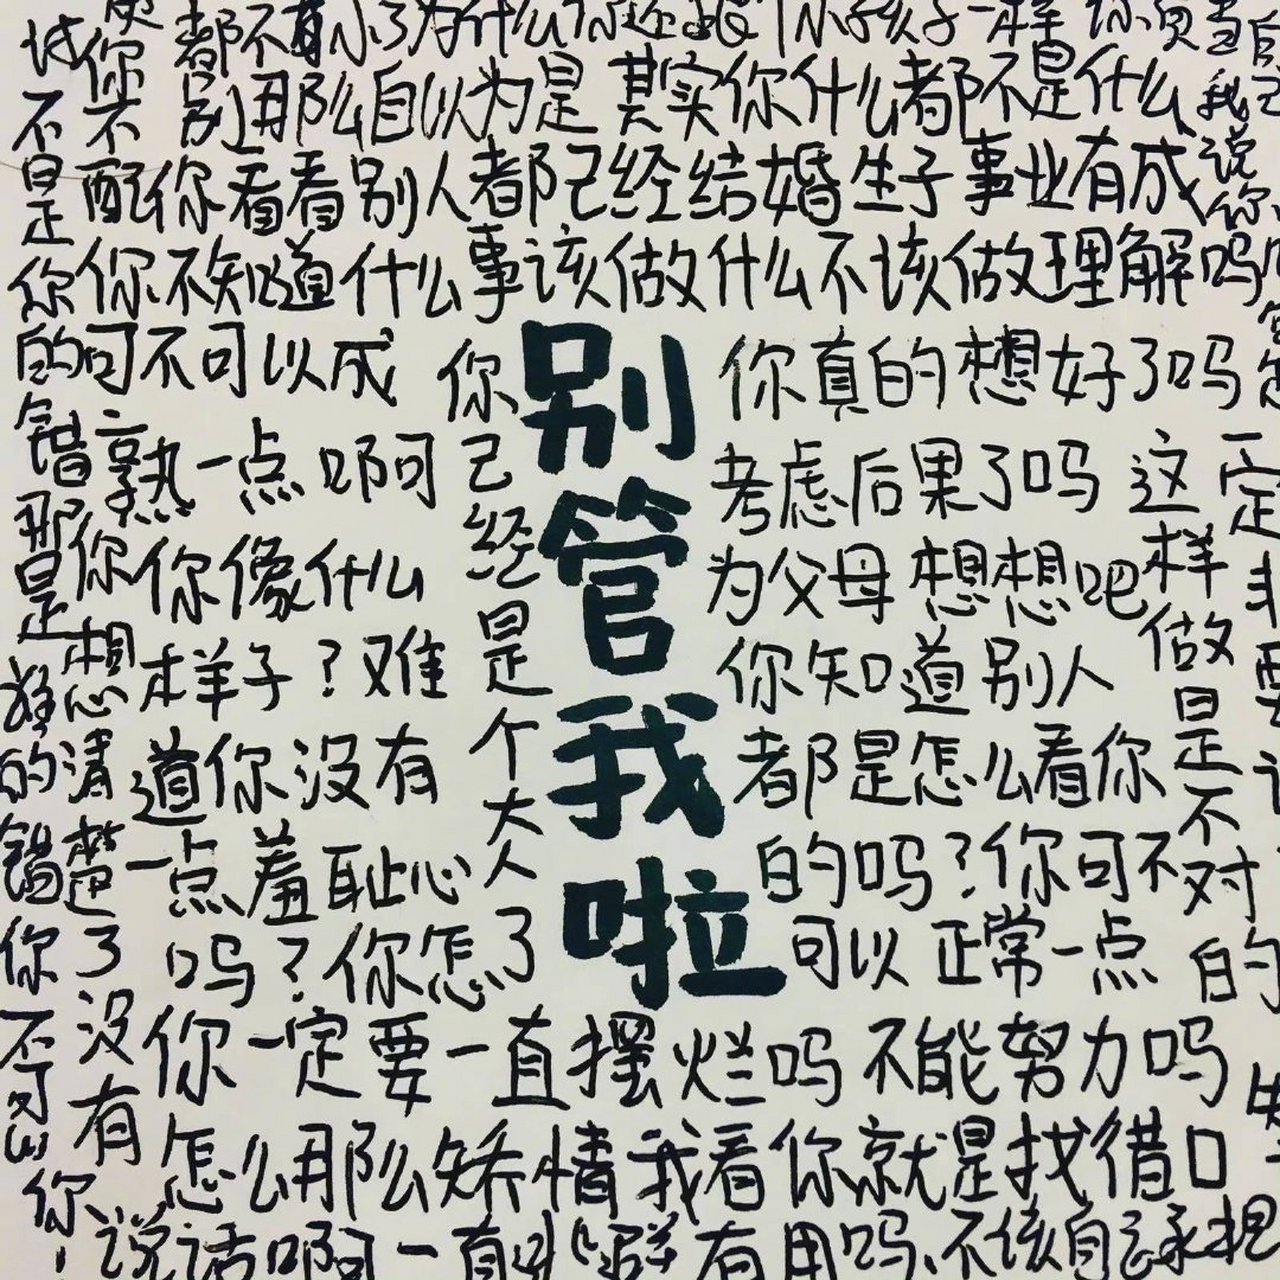 都不小了为什么你还跟个小孩子一样
别那么自以为是 其实你什么都不是
你看看别人都已经结婚生子事业有成
你不知道什么事该做什么不该做理解吗
可不可以成
熟一点啊
你像什么
样子?难
道你没有
一点羞耻心
吗?你怎了
你已经是个大人
别管我啦
你真的想好了吗
考虑后果了吗
为父母想想吧
你知道别人
都是怎么看你
的吗?你可不
可以正常一点
这样做是不对的
不是你的错那是谁的错
你不配
你想清楚了没有
你一定要一直摆烂吗 不能努力吗
怎么那么矫情我看你就是找借口
说话啊
有用吗
不该自己承担
一定非要